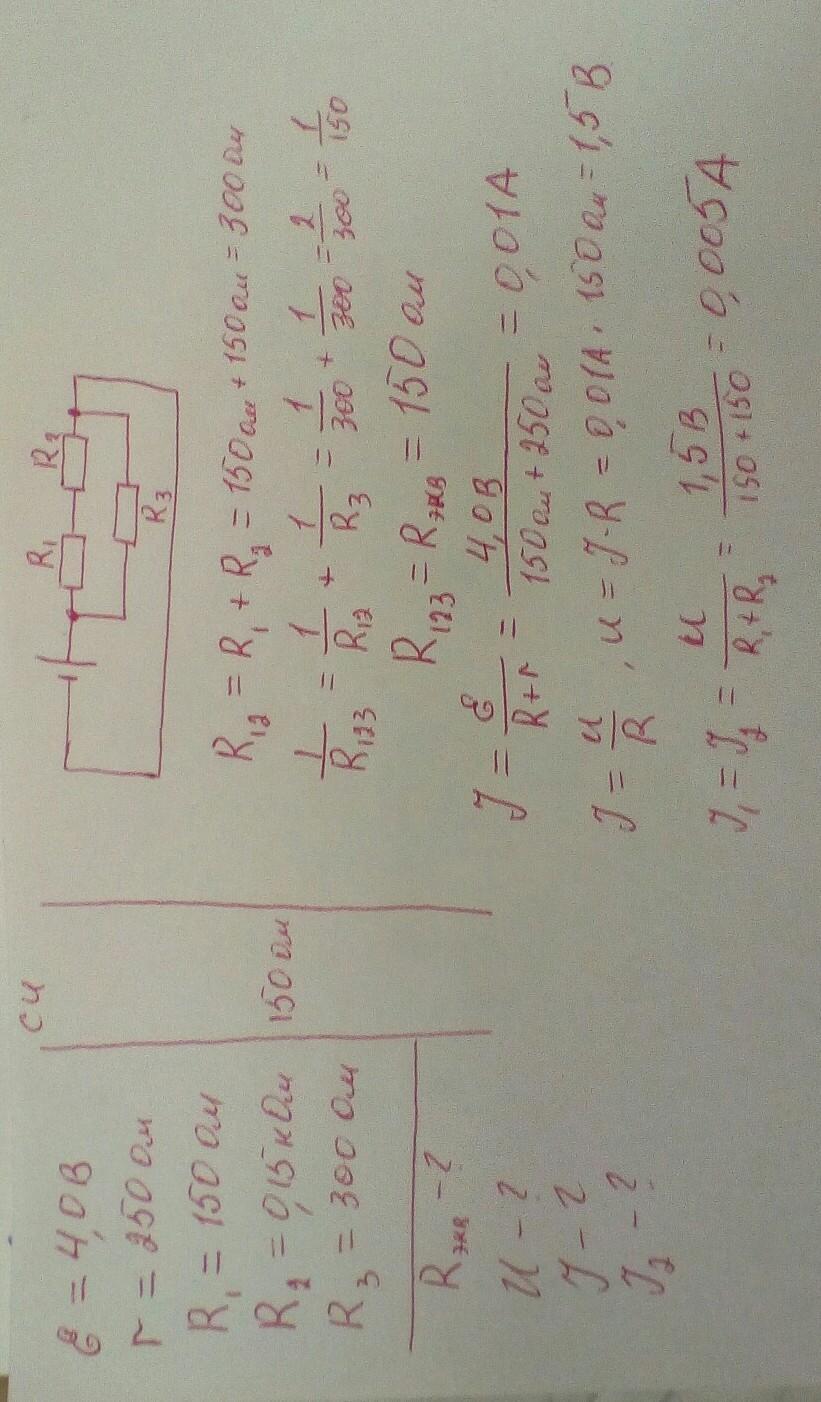 СИ
ℰ = 4,0 В
r = 250 Ом
R₁ = 150 Ом
R₂ = 0,15 кОм 150 Ом
R₃ = 300 Ом
Rэкв - ?
U - ?
J - ?
J₂ - ?
R₁ R₂
R₃
R₁₂ = R₁ + R₂ = 150 Ом + 150 Ом = 300 Ом
1/R₁₂₃ = 1/R₁₂ + 1/R₃ = 1/300 + 1/300 = 2/300 = 1/150
R₁₂₃ = Rэкв = 150 Ом
J = ℰ/(R+r) = 4,0 В/(150 Ом + 250 Ом) = 0,01 А
J = U/R, U = J·R = 0,01 А · 150 Ом = 1,5 В
J₁ = J₂ = U/(R₁+R₂) = 1,5 В/(150 + 150) = 0,005 А